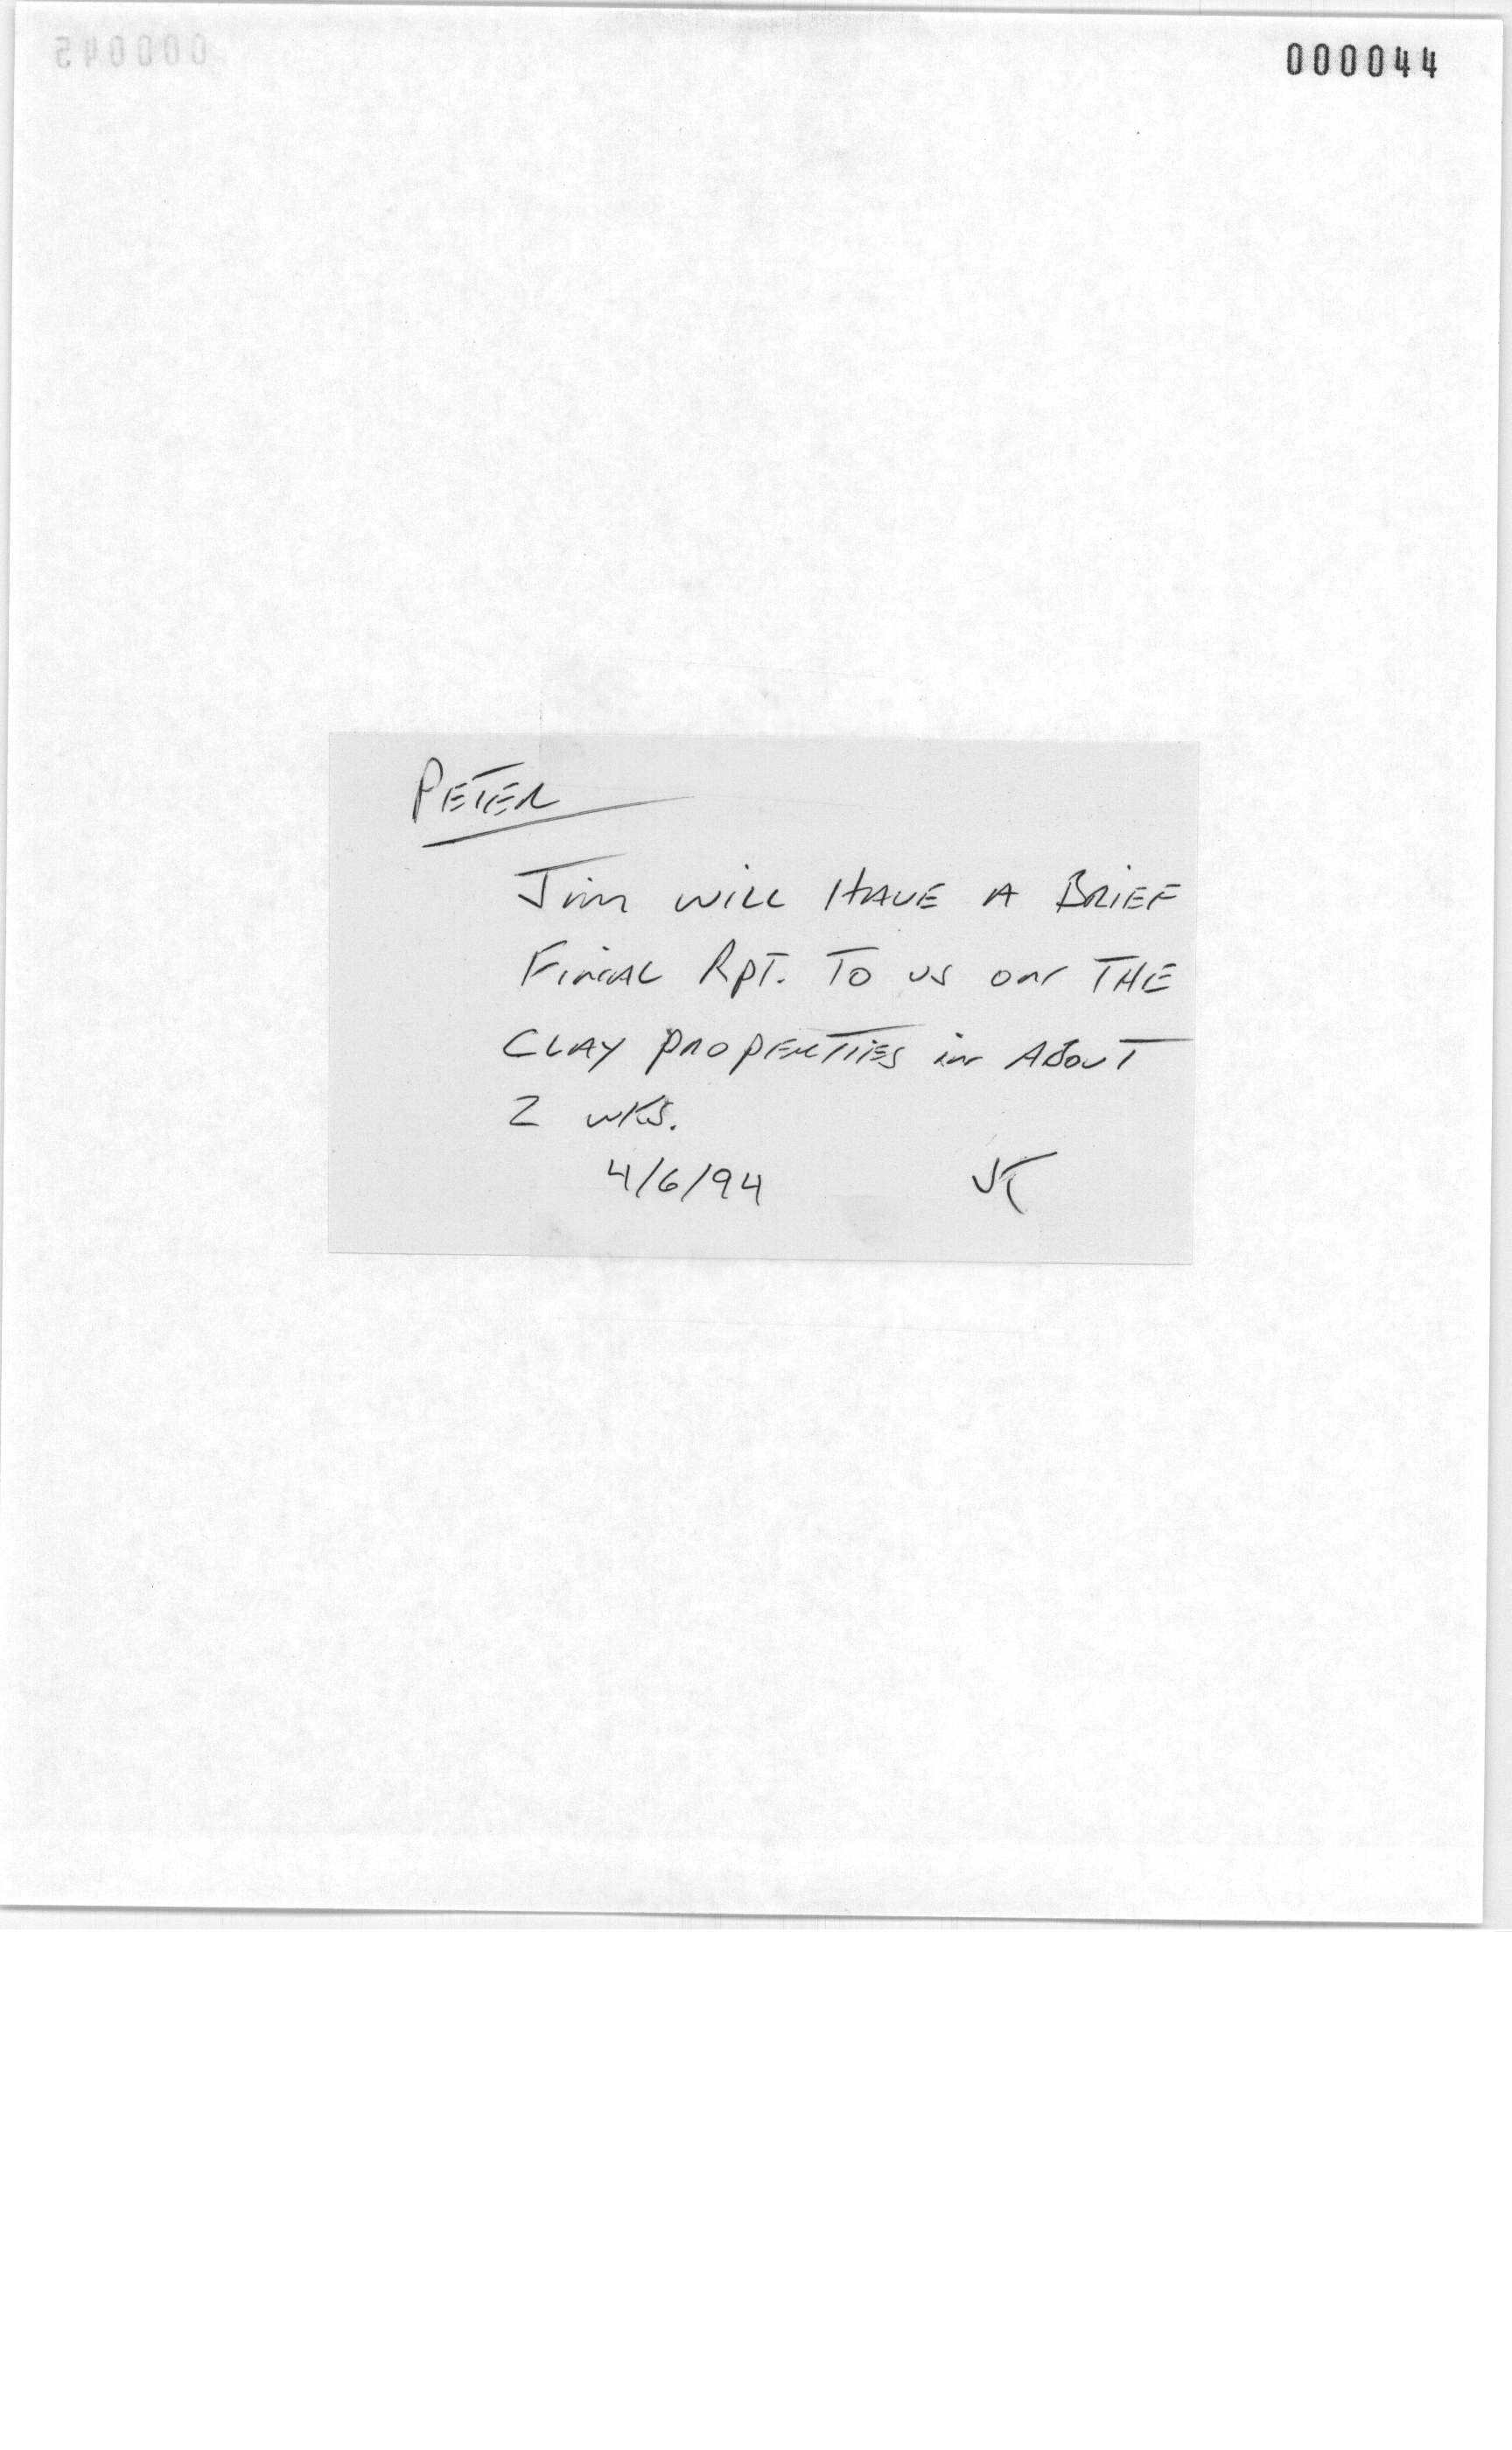 000044
PETER
Jim WILL HAVE A BRIEF
FINAL RPT. TO US ON THE
CLAY PROPERTIES in ABOUT
2 WKS.
4/6/94